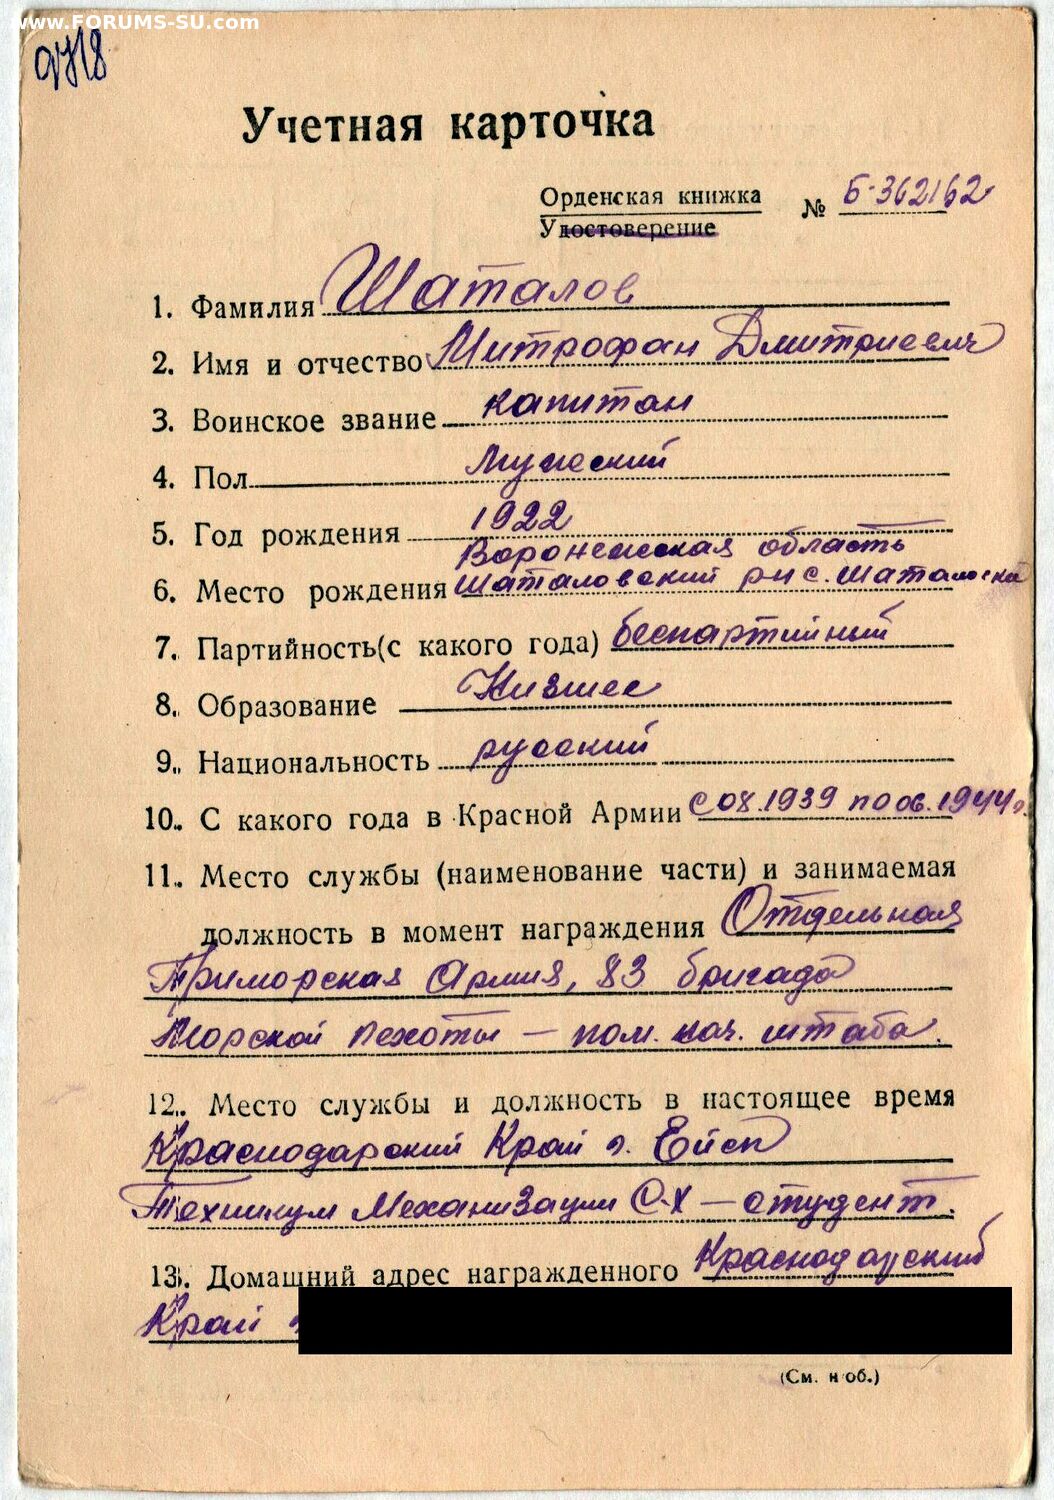 www.FORUMS-SU.com
Учетная карточка
Орденская книжка № Б-362162
Удостоверение
1. Фамилия Шаталов
2. Имя и отчество Митрофан Дмитриевич
3. Воинское звание капитан
4. Пол Мужеский
5. Год рождения 1922
Воронежская область
6. Место рождения Шаталовский р-н с. Шаталовка
7. Партийность(с какого года) беспартийный
8. Образование Низшее
9. Национальность русский
10. С какого года в Красной Армии с 08.1939 по 06.1944г.
11. Место службы (наименование части) и занимаемая
должность в момент награждения Отдельная
Приморская Армия, 83 бригада
Морской пехоты — пом. нач. штаба.
12. Место службы и должность в настоящее время
Краснодарский Край г. Ейск
Техникум Механизации С-Х — студент.
13. Домашний адрес награжденного Краснодарский
Край г.
(См. н об.)